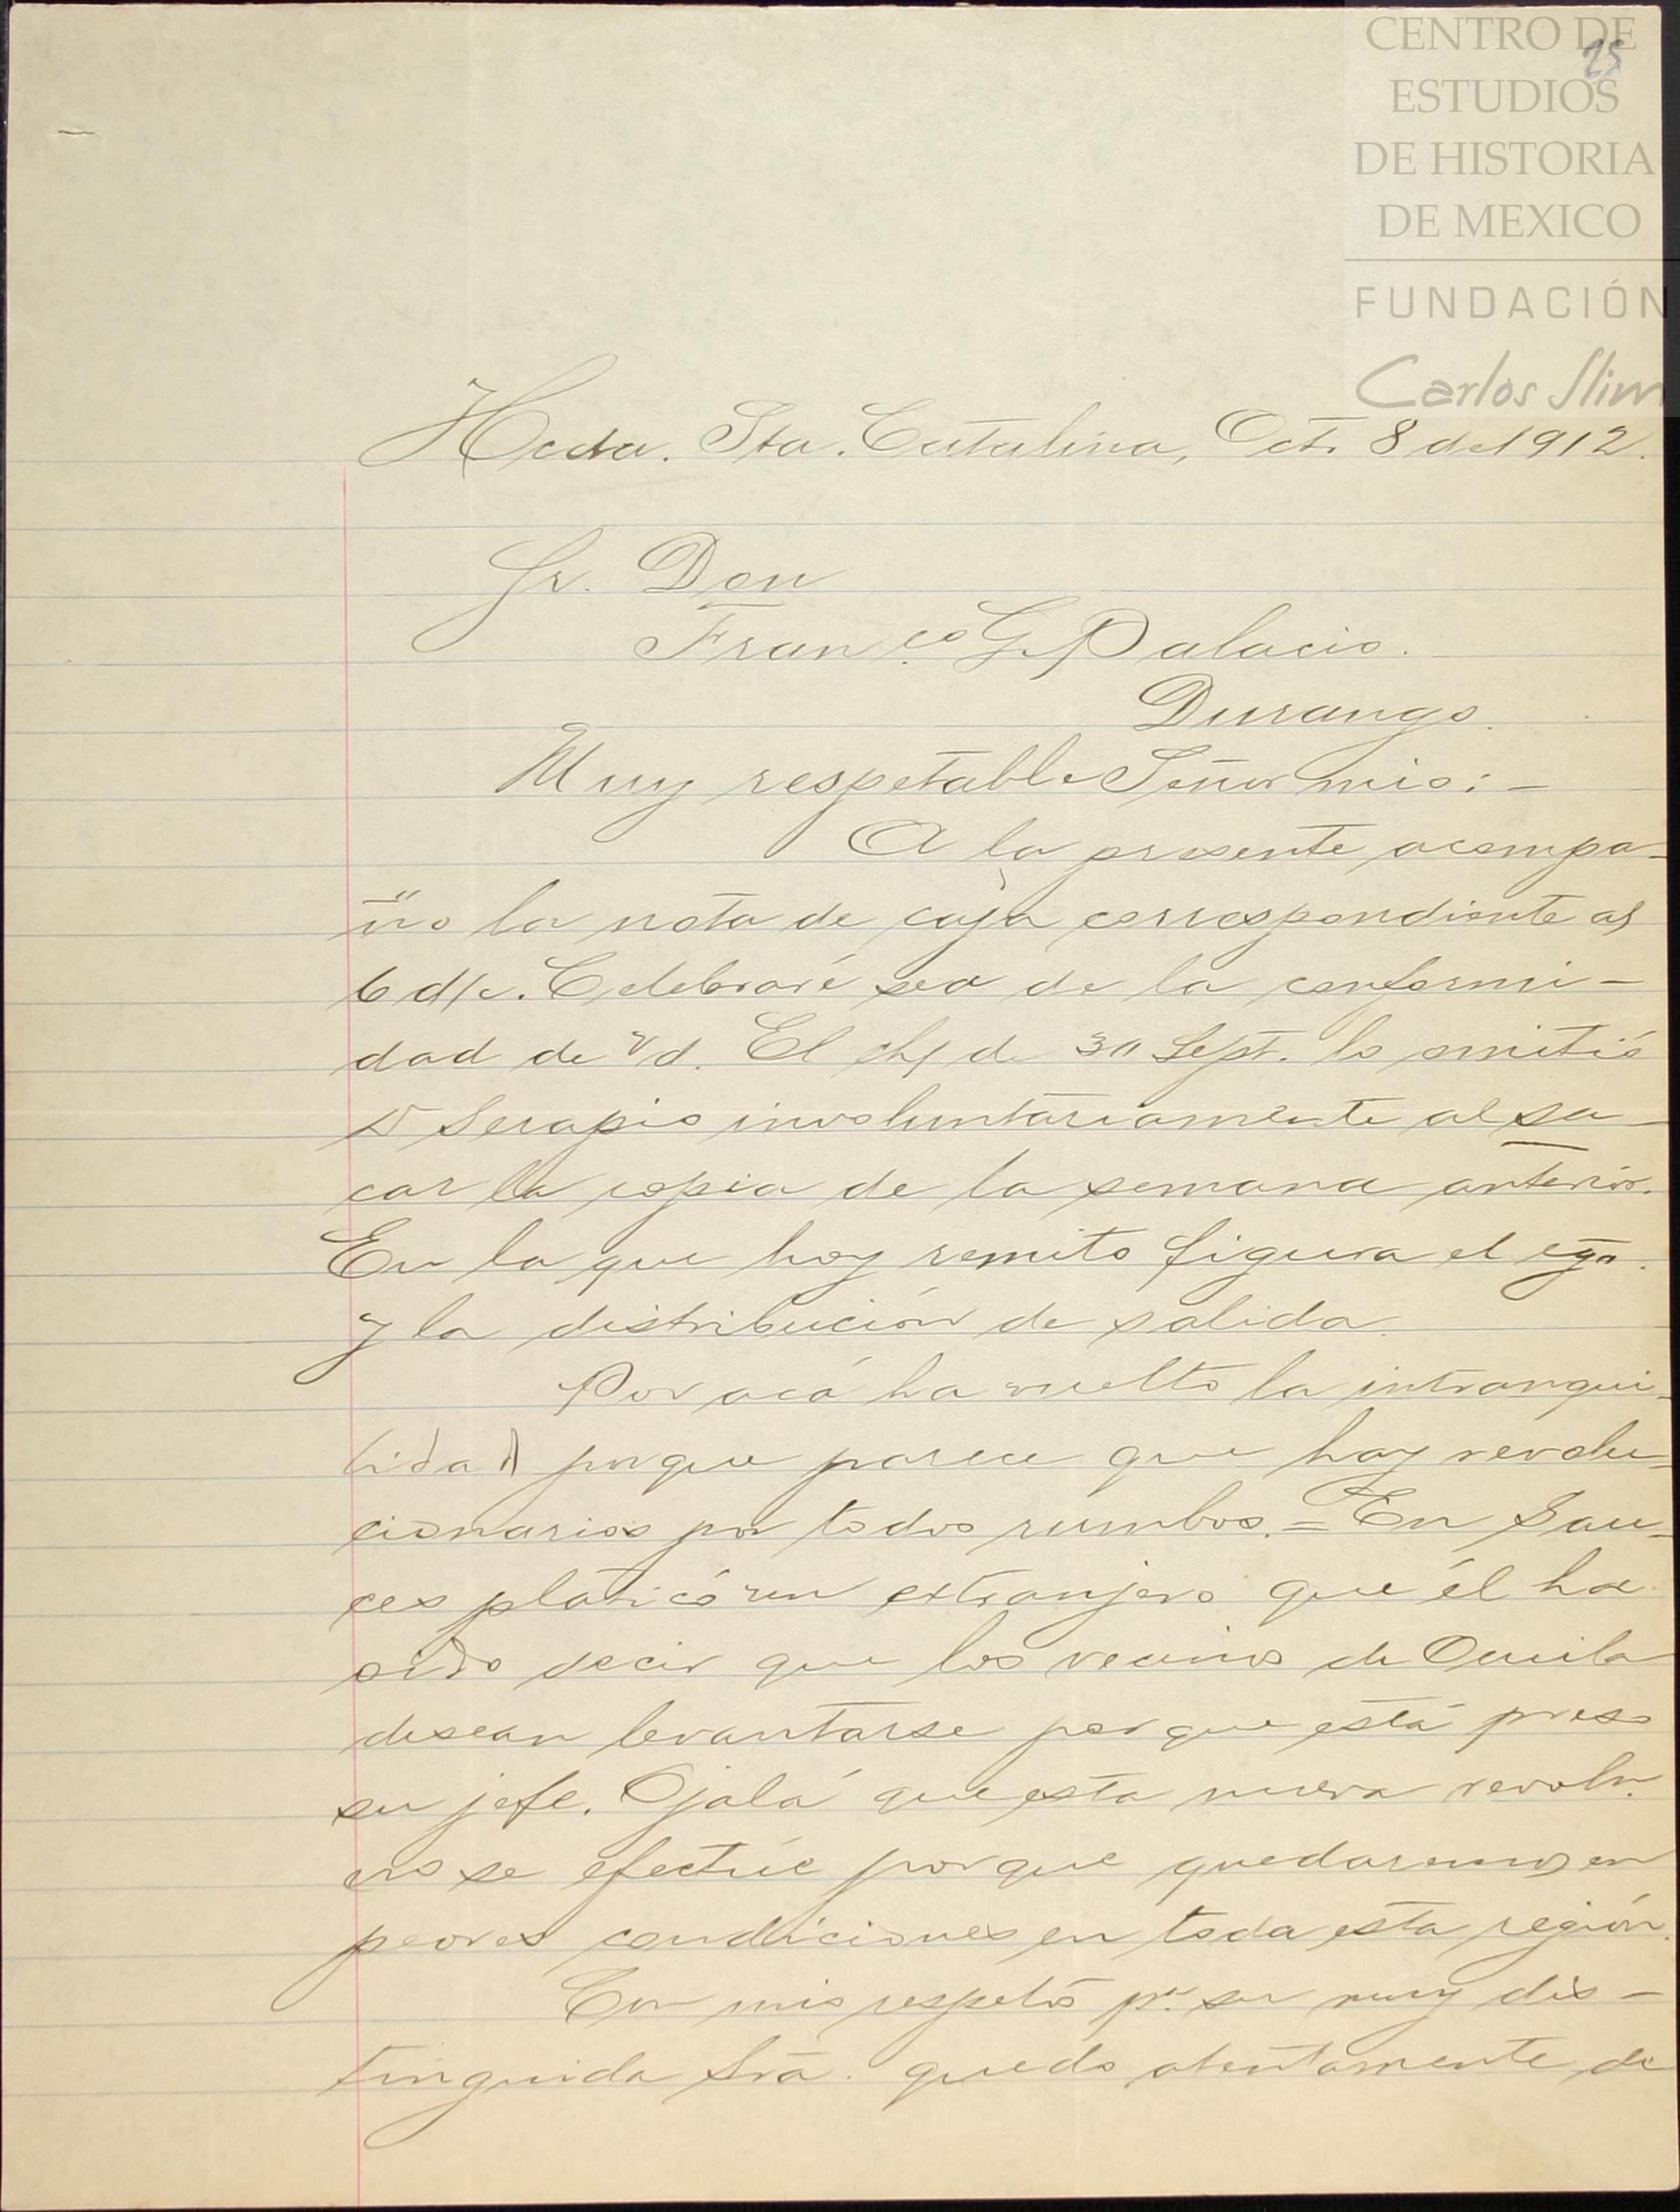 CENTRO DE
ESTUDIOS
DE HISTORIA
DE MEXICO
FUNDACIÓN
Carlos Slim
25
Hcda. Sta. Catalina, Oct. 8 de 1912.
Sr. Don
Franco. G. Palacio.
Durango.
Muy respetable Señor mio: -
A la presente acompa-
ño la nota de caja correspondiente al
6 d/c. Celebraré sea de la conformi-
dad de Vd. El de 30 Sept. lo omitió
D Serapio involuntariamente al sa-
car la copia de la semana anterior.
En la que hoy remito figura el
y la distribución de salida.
Por acá ha vuelto la intranqui-
lidad porque parece que hay revolu-
cionarios por todos rumbos. = En Sau-
ces platicó un extranjero que él ha
oido decir que los vecinos de Ocuila
desean levantarse porque está preso
su jefe. Ojalá que esta nueva revoln.
no se efectúe porque quedaremos en
peores condiciones en toda esta región.
Con mis respetos pa. su muy dis-
tinguida Sra. quedo atentamente de